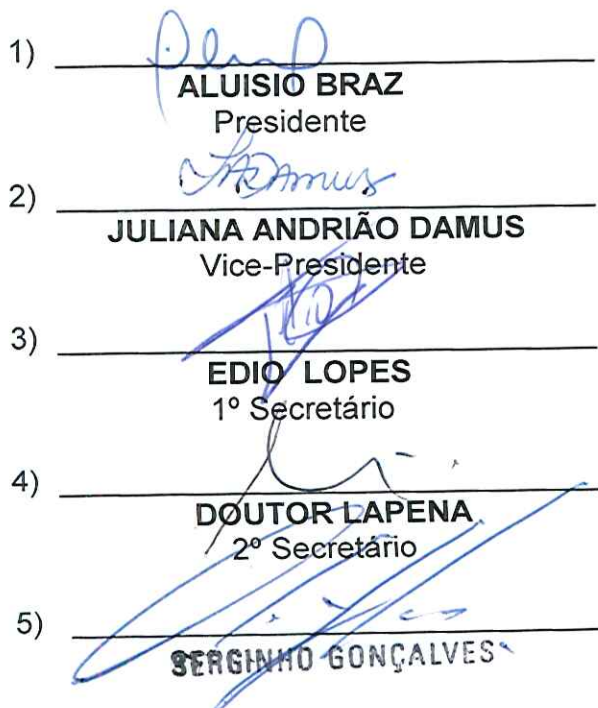 1)
ALUISIO BRAZ
Presidente
2) JADamus
JULIANA ANDRIÃO DAMUS
Vice-Presidente
3)
EDIO LOPES
1º Secretário
4)
DOUTOR LAPENA
2º Secretário
5)
SERGINHO GONÇALVES